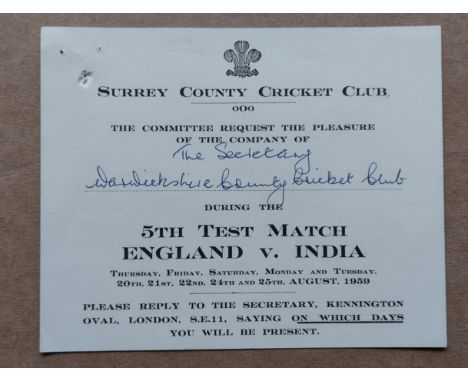 SURREY COUNTY CRICKET CLUB
OOO
THE COMMITTEE REQUEST THE PLEASURE
OF THE COMPANY OF
The Secretary
Warwickshire County Cricket Club
DURING THE
5TH TEST MATCH
ENGLAND v. INDIA
THURSDAY, FRIDAY, SATURDAY, MONDAY AND TUESDAY,
20TH, 21ST, 22ND, 24TH AND 25TH, AUGUST, 1959
PLEASE REPLY TO THE SECRETARY, KENNINGTON
OVAL, LONDON, S.E.11, SAYING ON WHICH DAYS
YOU WILL BE PRESENT.